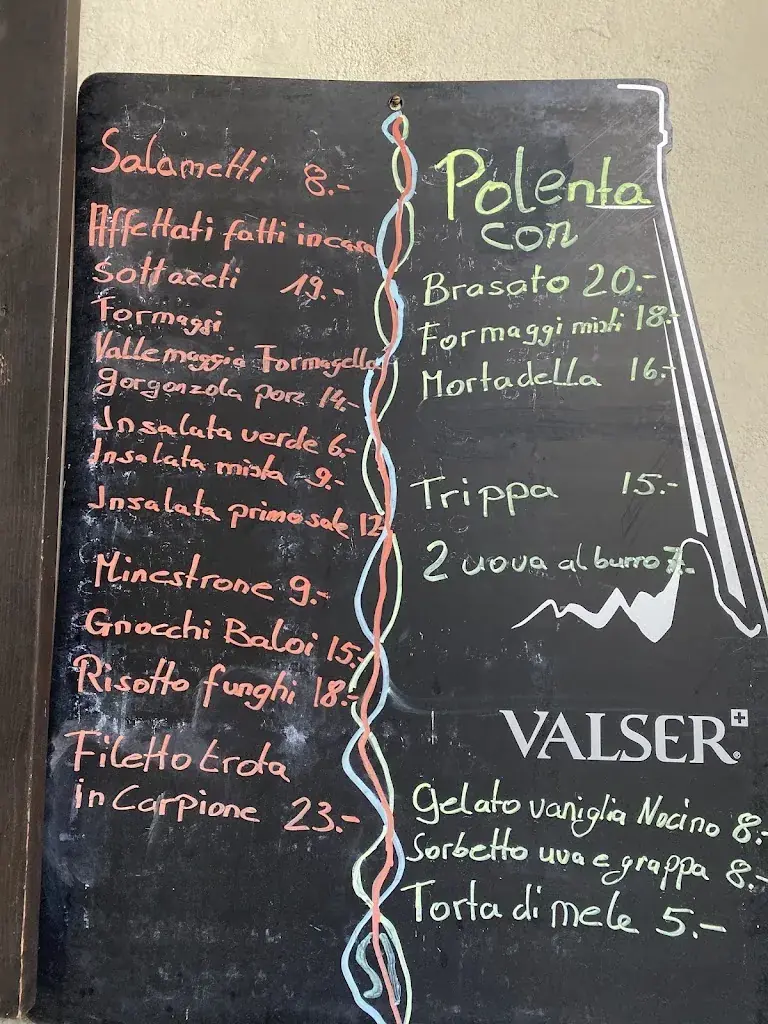 Salametti 8.-
Affettati fatti in casa
Sottaceti 19.-
Formaggi
Vallemaggia Formagella
gorgonzola porz 14.-
Insalata verde 6.-
Insalata mista 9.-
Insalata primosale 12
Minestrone 9.-
Gnocchi Baloi 15.-
Risotto funghi 18.-
Filetto trota
in Carpione 23.-
Polenta
con
Brasato 20.-
Formaggi misti 18.-
Mortadella 16.-
Trippa 15.-
2 uova al burro 7.-
VALSER
Gelato vaniglia Nocino 8.-
Sorbetto uva e grappa 8.-
Torta di mele 5.-